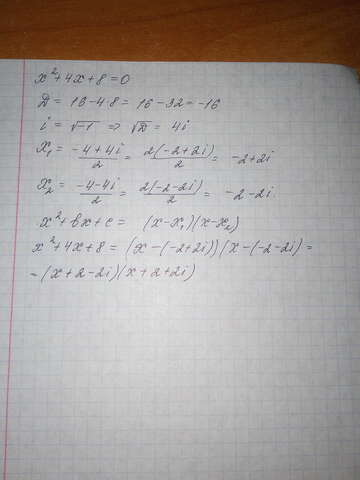 x²+4x+8=0
D = 16-4·8 = 16-32 = -16
i = √-1 ⇒ √D = 4i
x₁ = (-4+4i)/2 = 2(-2+2i)/2 = -2+2i
x₂ = (-4-4i)/2 = 2(-2-2i)/2 = -2-2i
x²+bx+c = (x-x₁)(x-x₂)
x²+4x+8 = (x-(-2+2i))(x-(-2-2i) =
= (x+2-2i)(x+2+2i)